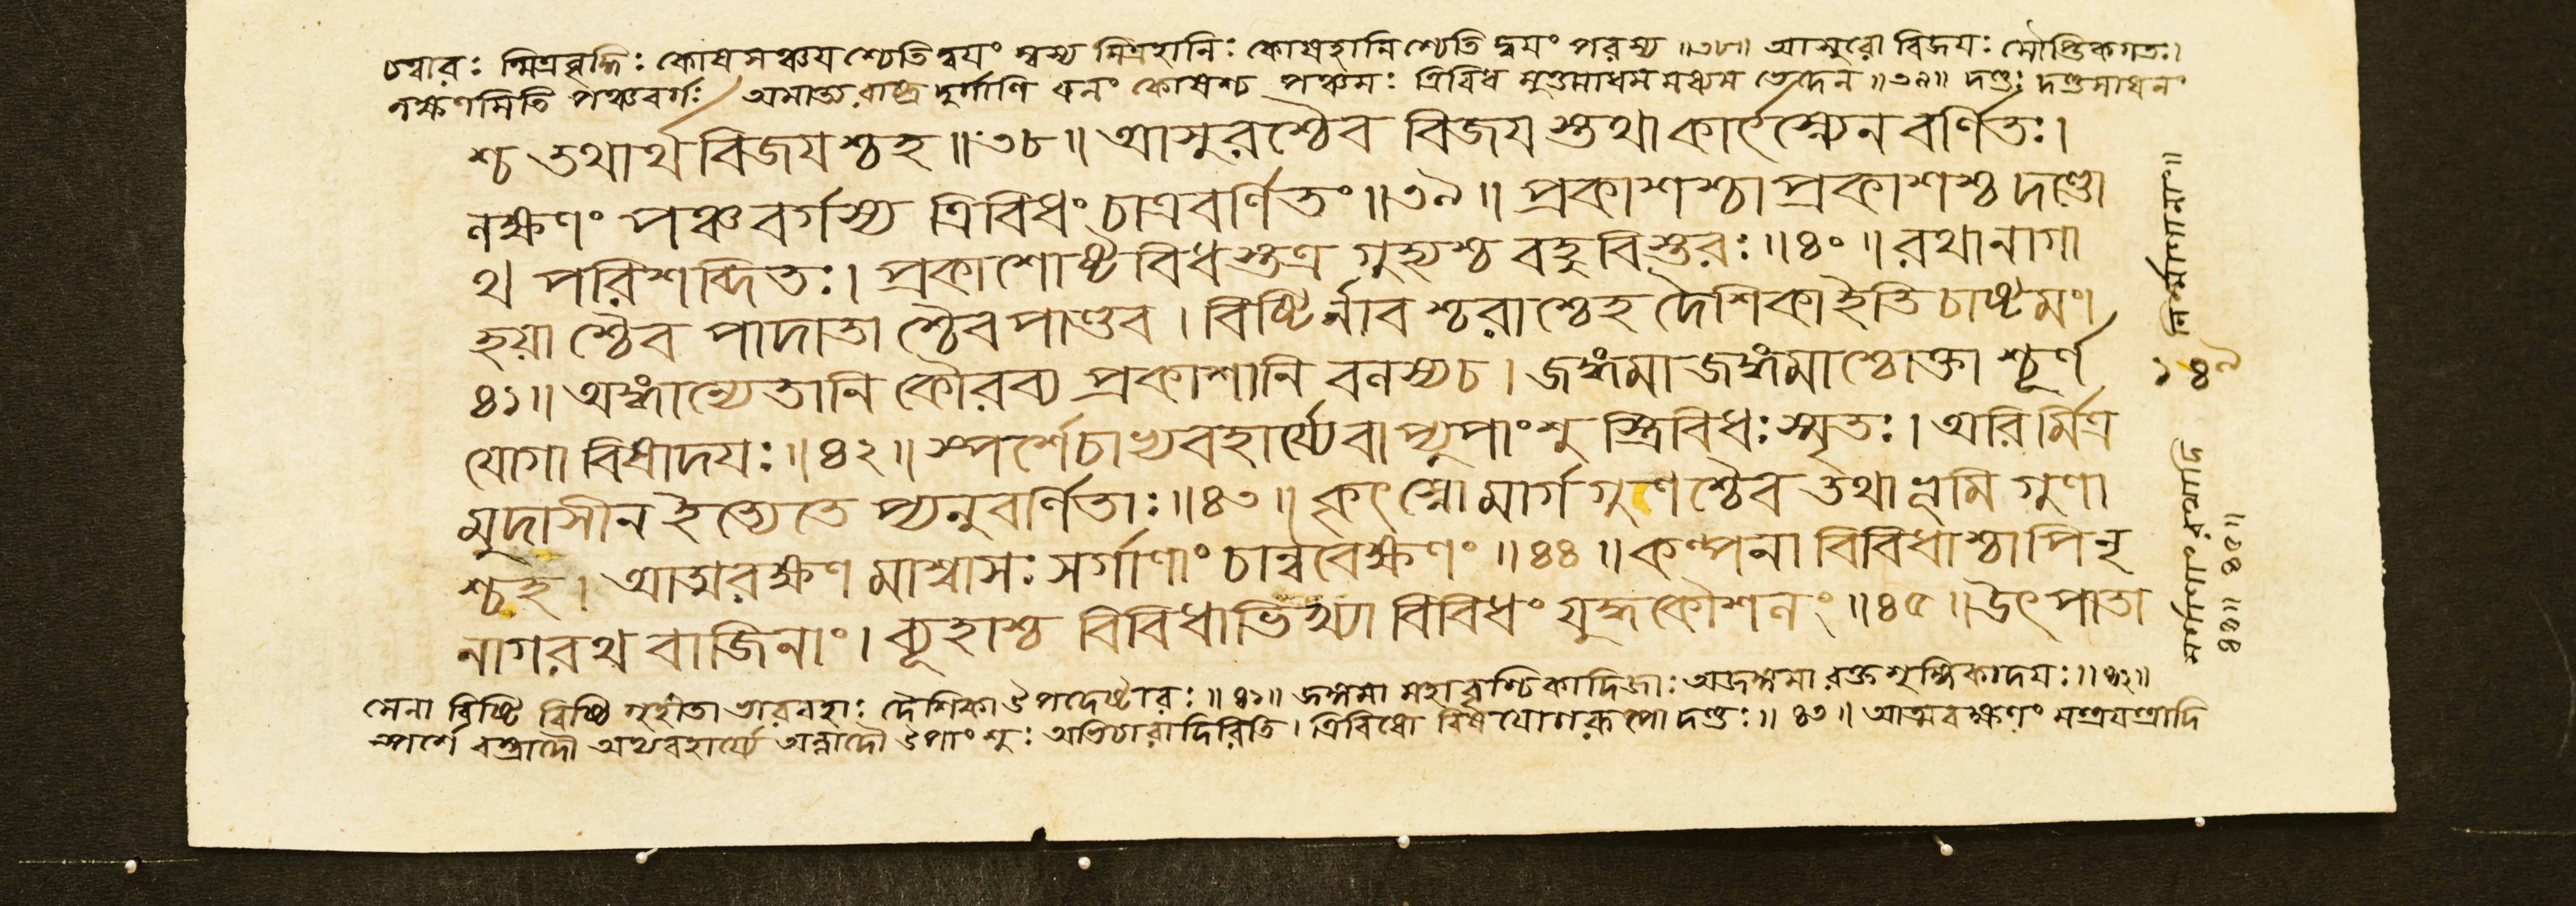 চত্বারঃ মিত্রবৃদ্ধিঃ কোষসঞ্চয়শ্চেতি দ্বয়ং স্বস্য মিত্রহানিঃ কোষহানিশ্চেতি দ্বয়ং পরস্য ॥৩৮॥ আসুরো বিজয়ঃ সৌপ্তিকগতঃ।
লক্ষণমিতি পঞ্চবর্গঃ অমাত্য রাষ্ট্র দুর্গাণি ধনং কোষশ্চ পঞ্চমঃ ত্রিবিধ মুত্তমাধম মধ্যম ভেদেন ॥৩৯॥ দণ্ডঃ দণ্ডসাধনং
শ্চ তথার্থ বিজয়শ্চহ ॥৩৮॥ আসুরশ্চৈব বিজয় স্তথা কার্ৎস্ন্যেন বর্ণিতঃ।
লক্ষণং পঞ্চ বর্গস্য ত্রিবিধং চাত্রবর্ণিতং ॥৩৯॥ প্রকাশশ্চা প্রকাশশ্চ দণ্ডো
থ পরিশব্দিতঃ। প্রকাশোষ্ট বিধ স্তত্র গুহ্যশ্চ বহু বিস্তরঃ ॥৪০॥ রথা নাগা
হয়া শ্চৈব পাদাতা শ্চৈব পাণ্ডব। বিষ্টির্নাব শ্চরাশ্চেহ দৈশিকা ইতি চাষ্টমং।
৪১॥ অঙ্গান্যেতানি কৌরব্য প্রকাশানি বলস্যচ। জঙ্গমা জঙ্গমাশ্চোক্তা শ্চূর্ণ
যোগা বিষাদয়ঃ ॥৪২॥ স্পর্শেচাভ্যবহার্য্যেবা প্যুপাংশু স্ত্রিবিধঃ স্মৃতঃ। অরি র্মিত্র
মুদাসীন ইত্যেতে প্যনুবর্ণিতাঃ ॥৪৩॥ কৃৎস্নো মার্গ গুণ শ্চৈব তথা ভূমি গুণা
শ্চহ। আত্মরক্ষণ মাশ্বাসঃ সর্গাণাং চান্ববেক্ষণং ॥৪৪॥ কল্পনা বিবিধাশ্চাপি নৃ
নাগরথ বাজিনাং। ব্যূহাশ্চ বিবিধাভিখ্যা বিবিধং যুদ্ধ কৌশলং ॥৪৫॥ উৎপাতা
সেনা বিষ্টি বিষ্টি গৃহীতা ভারবহাঃ দৈশিকা উপদেষ্টারঃ ॥৪১॥ জঙ্গমা মহাবৃশ্চিকাদিজাঃ অজঙ্গমা রক্তশৃঙ্গিকাদয়ঃ ॥৪২॥
স্পর্শে বস্ত্রাদৌ অভ্যবহার্য্যে অন্নাদৌ উপাংশুঃ অভিচারাদিরিতি। ত্রিবিধো বিষযোগরূপো দণ্ডঃ ॥৪৩॥ আত্মরক্ষণং মন্ত্রযন্ত্রাদি
নির্মাণানাং॥
১৪৯
সর্গাণাং রথাদি
৪৪॥ ৪৫॥